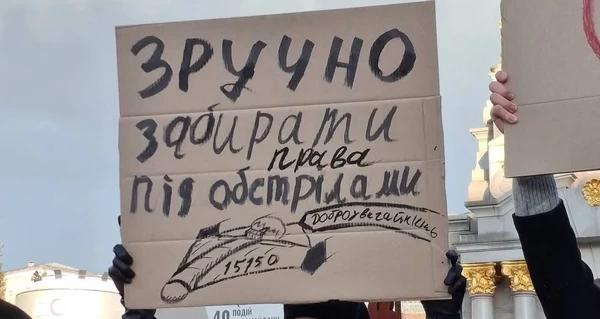 ЗРУЧНО
забирати
права
під обстрілами
ДОБРОЗВИЧАЙНІСТЬ
15150
ПОДІЙ